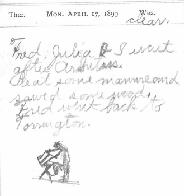 Ther. MON. APRIL 17, 1899 Wea.
clear.
Fred, Julia & I went
after Arbutus.
Heat some manure and
sawed some wood.
Fred went back to
Torrington.